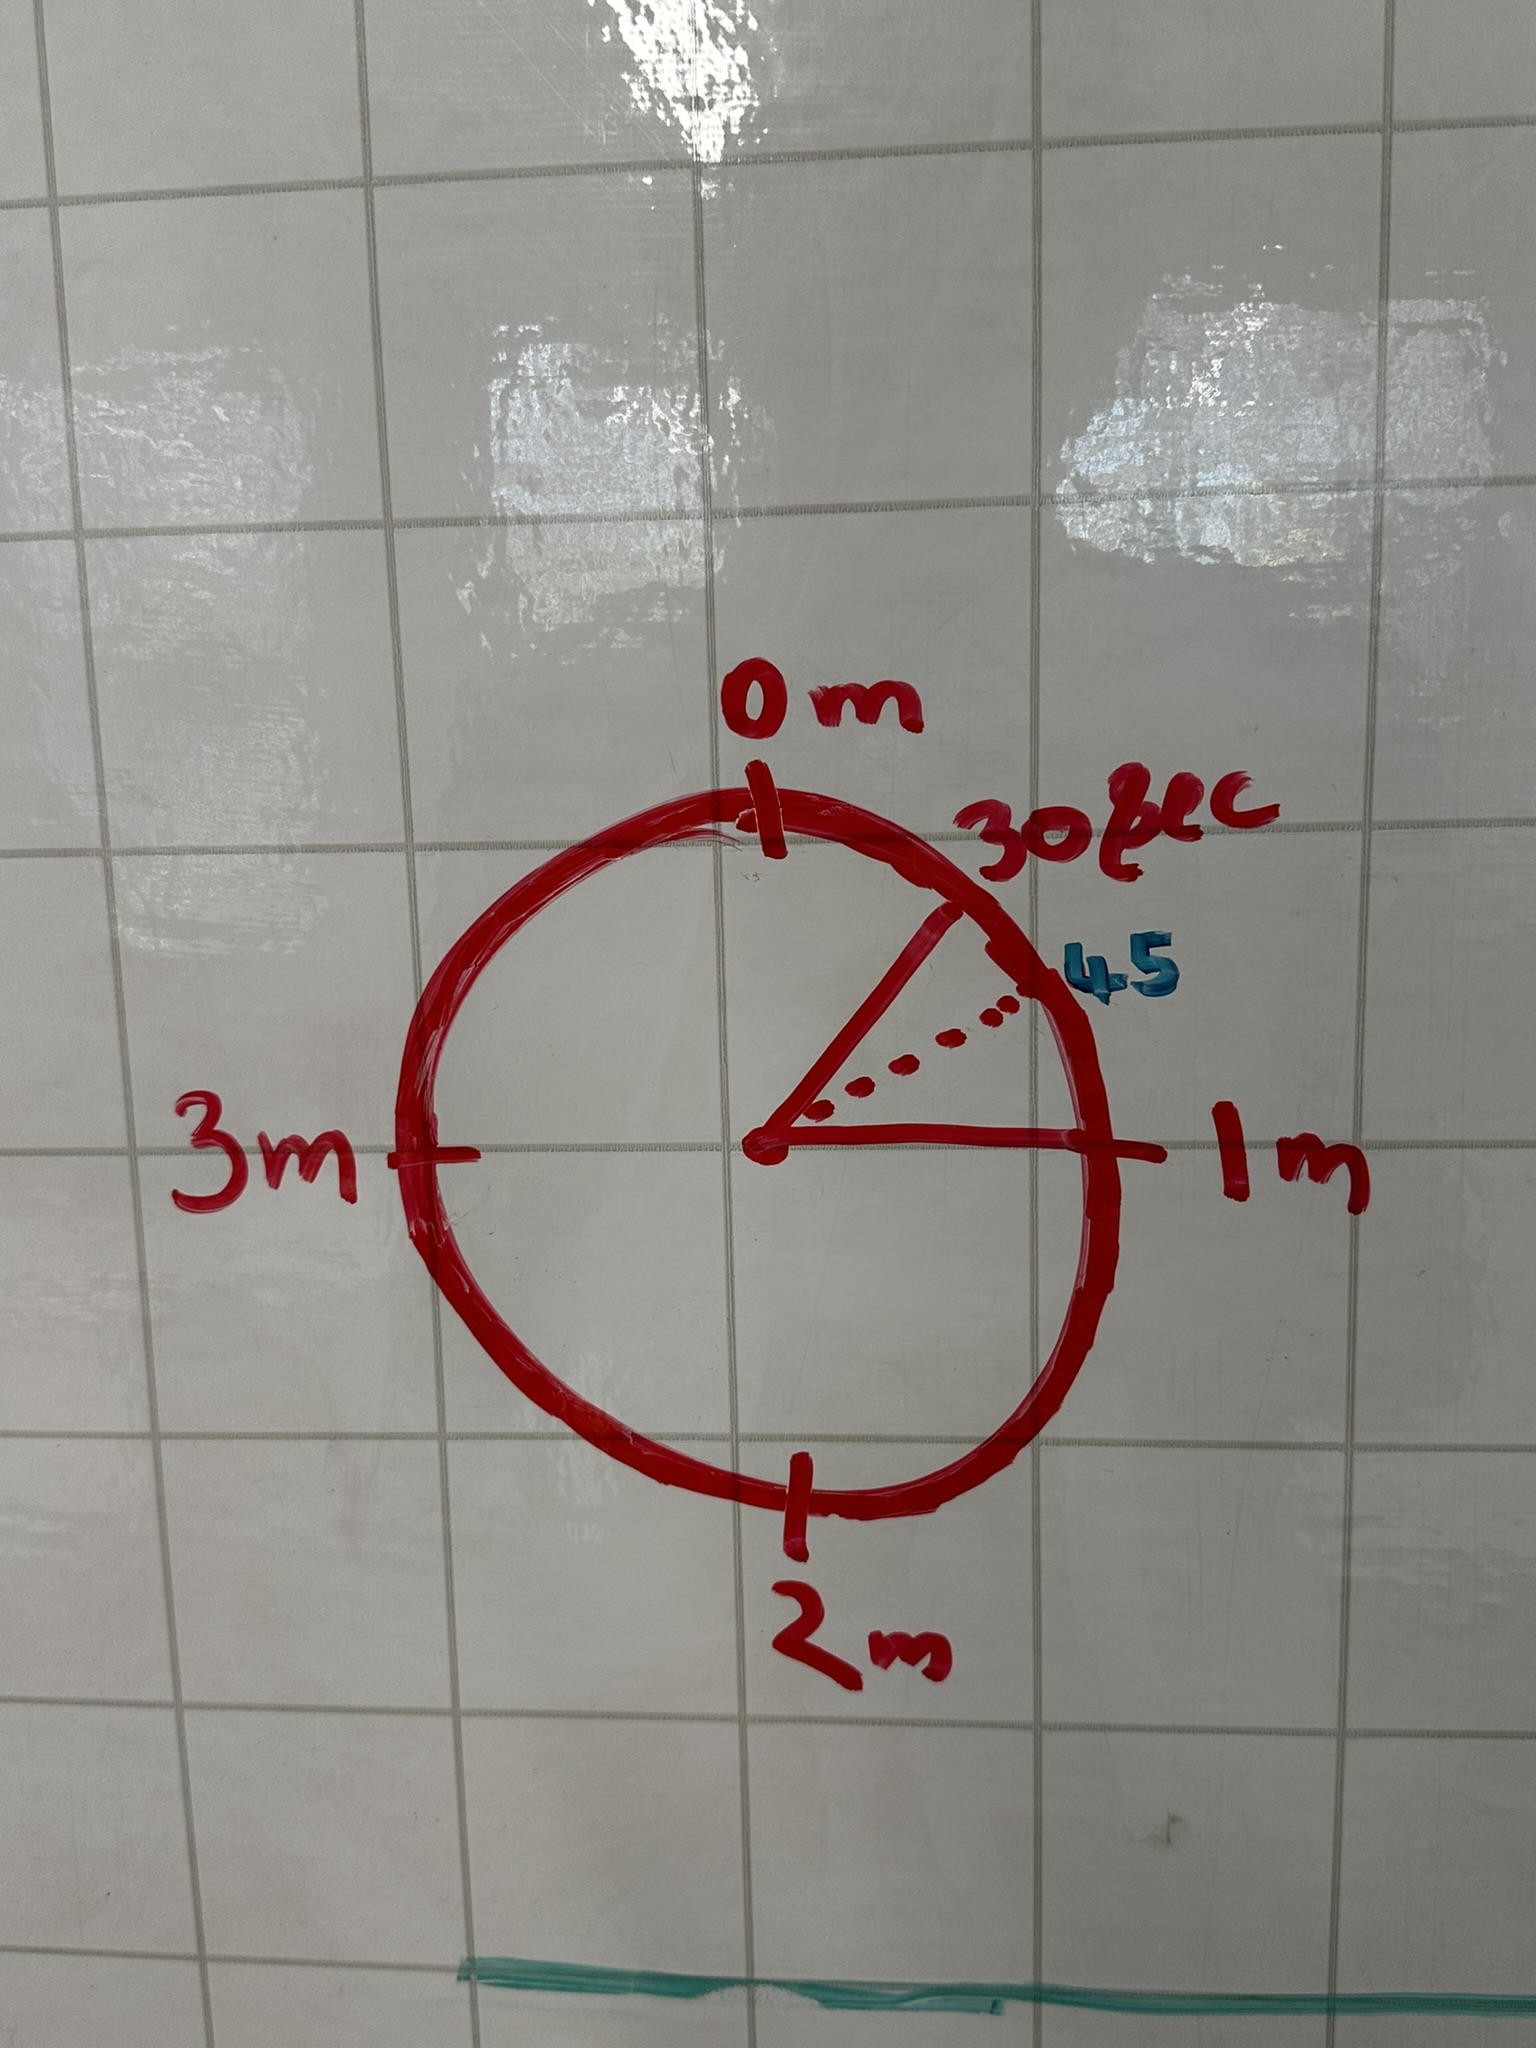 0m
30sec
45
3m
1m
2m